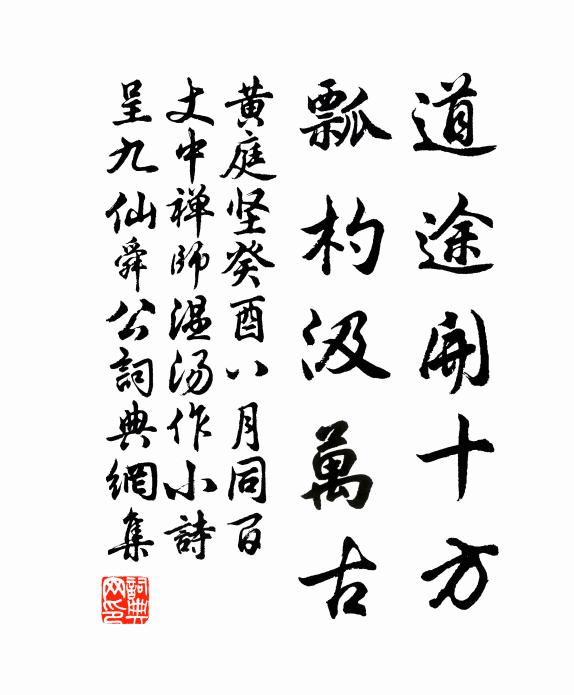 道途開十方
瓢杓汲萬古
黄庭坚癸酉八月同百
丈中禅师温汤作小詩
呈九仙舜公詞典網集
詞典网印